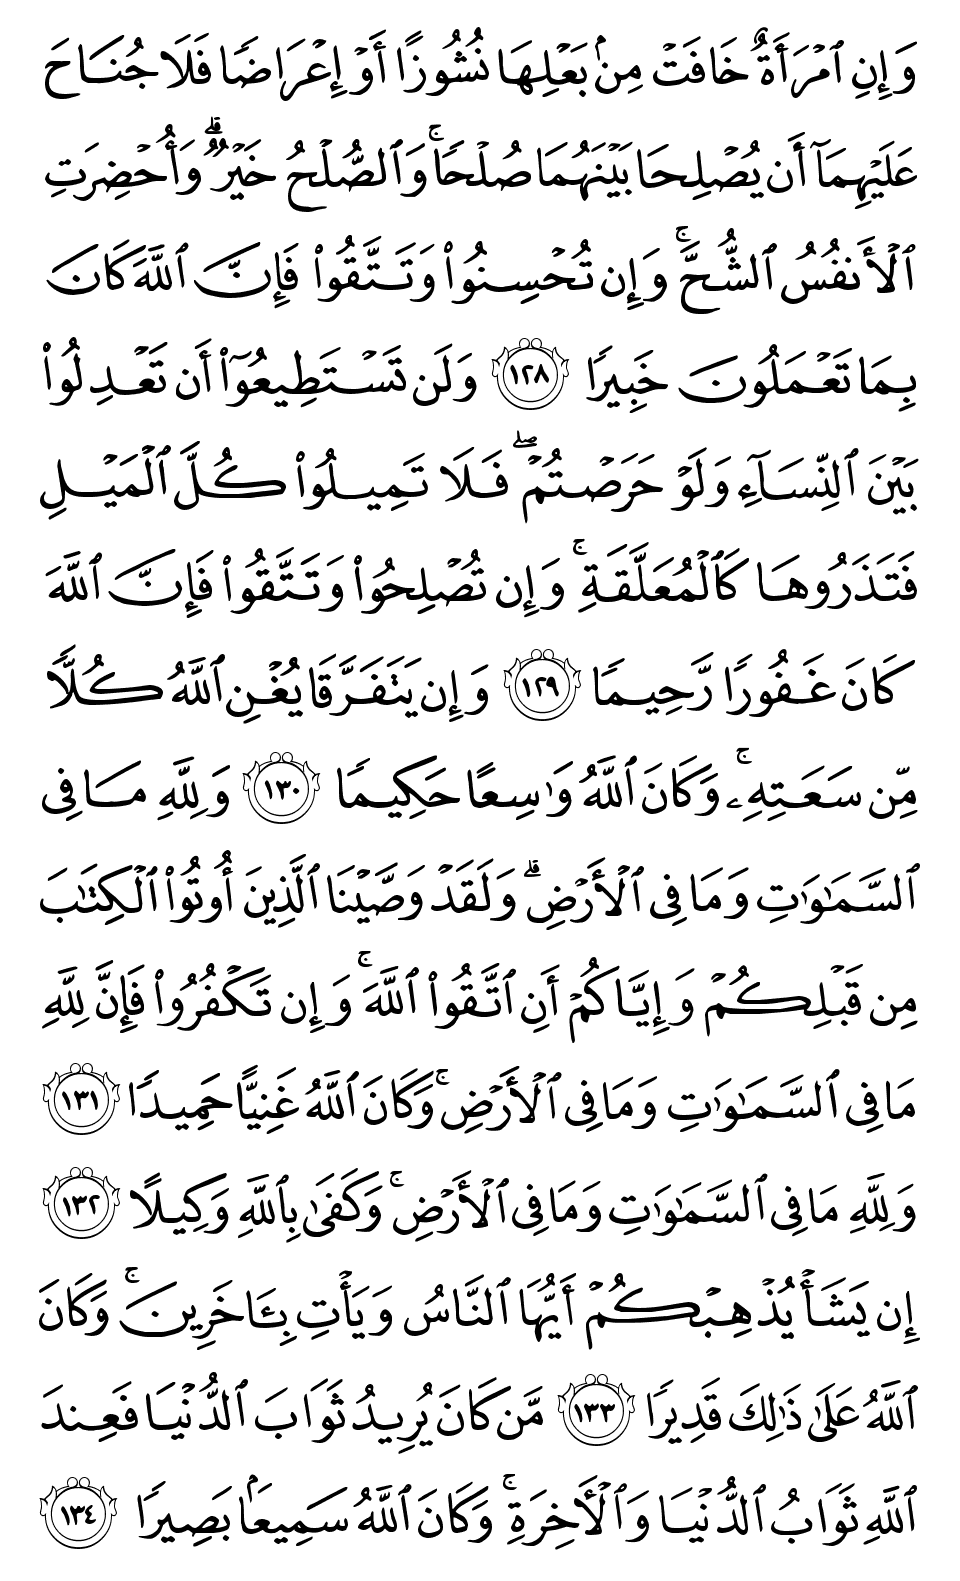 وَإِنِ ٱمۡرَأَةٌ خَافَتۡ مِنۢ بَعۡلِهَا نُشُوزًا أَوۡ إِعۡرَاضٗا فَلَا جُنَاحَ
عَلَيۡهِمَآ أَن يُصۡلِحَا بَيۡنَهُمَا صُلۡحٗاۚ وَٱلصُّلۡحُ خَيۡرٞۗ وَأُحۡضِرَتِ
ٱلۡأَنفُسُ ٱلشُّحَّۚ وَإِن تُحۡسِنُواْ وَتَتَّقُواْ فَإِنَّ ٱللَّهَ كَانَ
بِمَا تَعۡمَلُونَ خَبِيرٗا ١٢٨ وَلَن تَسۡتَطِيعُوٓاْ أَن تَعۡدِلُواْ
بَيۡنَ ٱلنِّسَآءِ وَلَوۡ حَرَصۡتُمۡۖ فَلَا تَمِيلُواْ كُلَّ ٱلۡمَيۡلِ
فَتَذَرُوهَا كَٱلۡمُعَلَّقَةِۚ وَإِن تُصۡلِحُواْ وَتَتَّقُواْ فَإِنَّ ٱللَّهَ
كَانَ غَفُورٗا رَّحِيمٗا ١٢٩ وَإِن يَتَفَرَّقَا يُغۡنِ ٱللَّهُ كُلّٗا
مِّن سَعَتِهِۦۚ وَكَانَ ٱللَّهُ وَٰسِعًا حَكِيمٗا ١٣٠ وَلِلَّهِ مَا فِي
ٱلسَّمَٰوَٰتِ وَمَا فِي ٱلۡأَرۡضِۗ وَلَقَدۡ وَصَّيۡنَا ٱلَّذِينَ أُوتُواْ ٱلۡكِتَٰبَ
مِن قَبۡلِكُمۡ وَإِيَّاكُمۡ أَنِ ٱتَّقُواْ ٱللَّهَۚ وَإِن تَكۡفُرُواْ فَإِنَّ لِلَّهِ
مَا فِي ٱلسَّمَٰوَٰتِ وَمَا فِي ٱلۡأَرۡضِۚ وَكَانَ ٱللَّهُ غَنِيًّا حَمِيدٗا ١٣١
وَلِلَّهِ مَا فِي ٱلسَّمَٰوَٰتِ وَمَا فِي ٱلۡأَرۡضِۚ وَكَفَىٰ بِٱللَّهِ وَكِيلًا ١٣٢
إِن يَشَأۡ يُذۡهِبۡكُمۡ أَيُّهَا ٱلنَّاسُ وَيَأۡتِ بِـَٔاخَرِينَۚ وَكَانَ
ٱللَّهُ عَلَىٰ ذَٰلِكَ قَدِيرٗا ١٣٣ مَّن كَانَ يُرِيدُ ثَوَابَ ٱلدُّنۡيَا فَعِندَ
ٱللَّهِ ثَوَابُ ٱلدُّنۡيَا وَٱلۡأٓخِرَةِۚ وَكَانَ ٱللَّهُ سَمِيعَۢا بَصِيرٗا ١٣٤